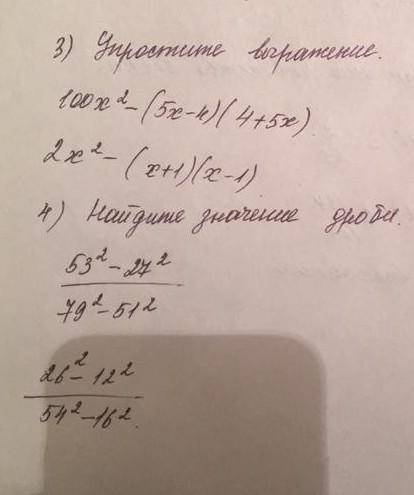 3) Упростите выражение.
100x² - (5x-4)(4+5x)
2x² - (x+1)(x-1)
4) Найдите значение дроби.
53² - 27²
79² - 51²
26² - 12²
54² - 16².